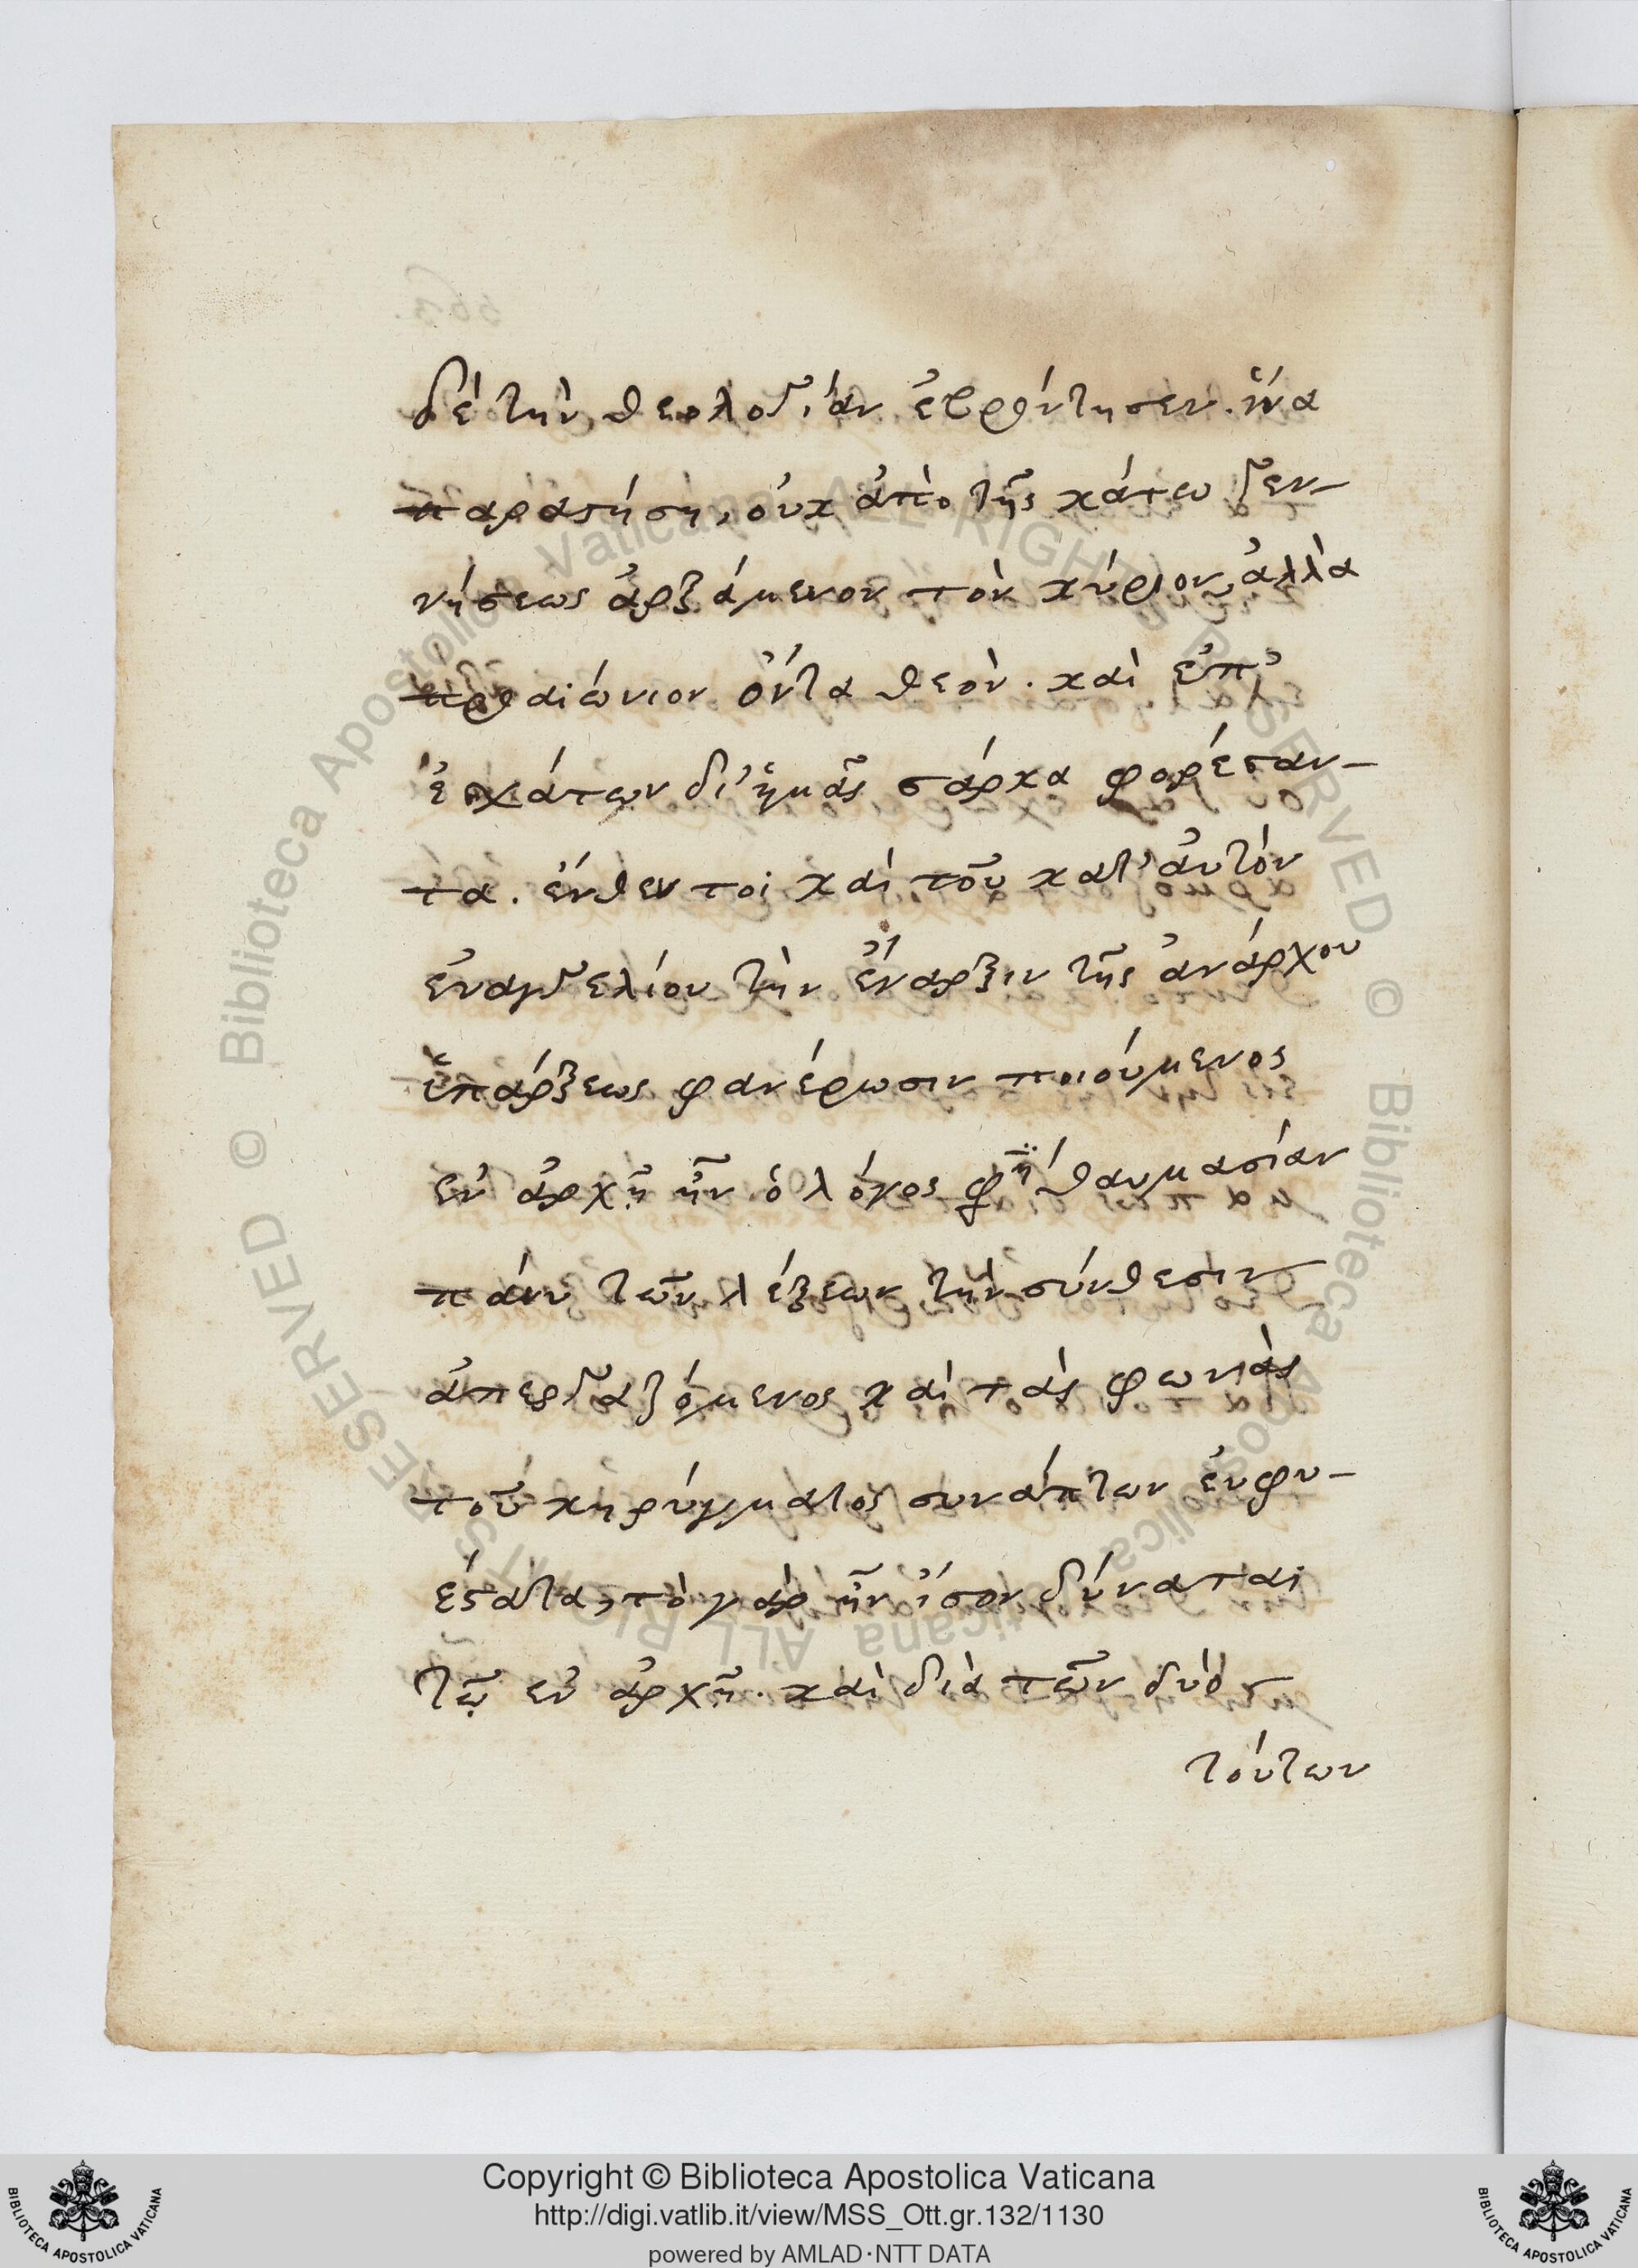 δὲ τὴν θεολογίαν ἐβρόντησεν. ἵνα
παραστήση, οὐκ ἀπὸ τῆς κάτω γεν-
νήσεως ἀρξάμενον τὸν κύριον, ἀλλὰ
προαιώνιον ὄντα θεὸν. καὶ ἐπ'
ἐσχάτων δι' ἡμᾶς σάρκα φορέσαν-
τα. ἔνθεν τοι καὶ τοῦ κατ' αὐτὸν
εὐαγγελίου τὴν ἔναρξιν τῆς ἀνάρχου
ὑπάρξεως φανέρωσιν ποιούμενος
ἐν ἀρχῇ ἦν ὁ λόγος φη θαυμασίαν
πάνυ τῶν λέξεων τὴν σύνθεσιν
ἀπεργαζόμενος καὶ τὰς φωνὰς
τοῦ κηρύγματος συνάπτων εὐφυ-
έστατα, τὸ γὰρ ἦν ἴσον δύναται
τῷ ἐν ἀρχῇ. καὶ διὰ τῶν δύο
τούτων
Copyright © Biblioteca Apostolica Vaticana
http://digi.vatlib.it/view/MSS_Ott.gr.132/1130
powered by AMLAD·NTT DATA
BIBLIOTECA APOSTOLICA VATICANA
BIBLIOTECA APOSTOLICA VATICANA